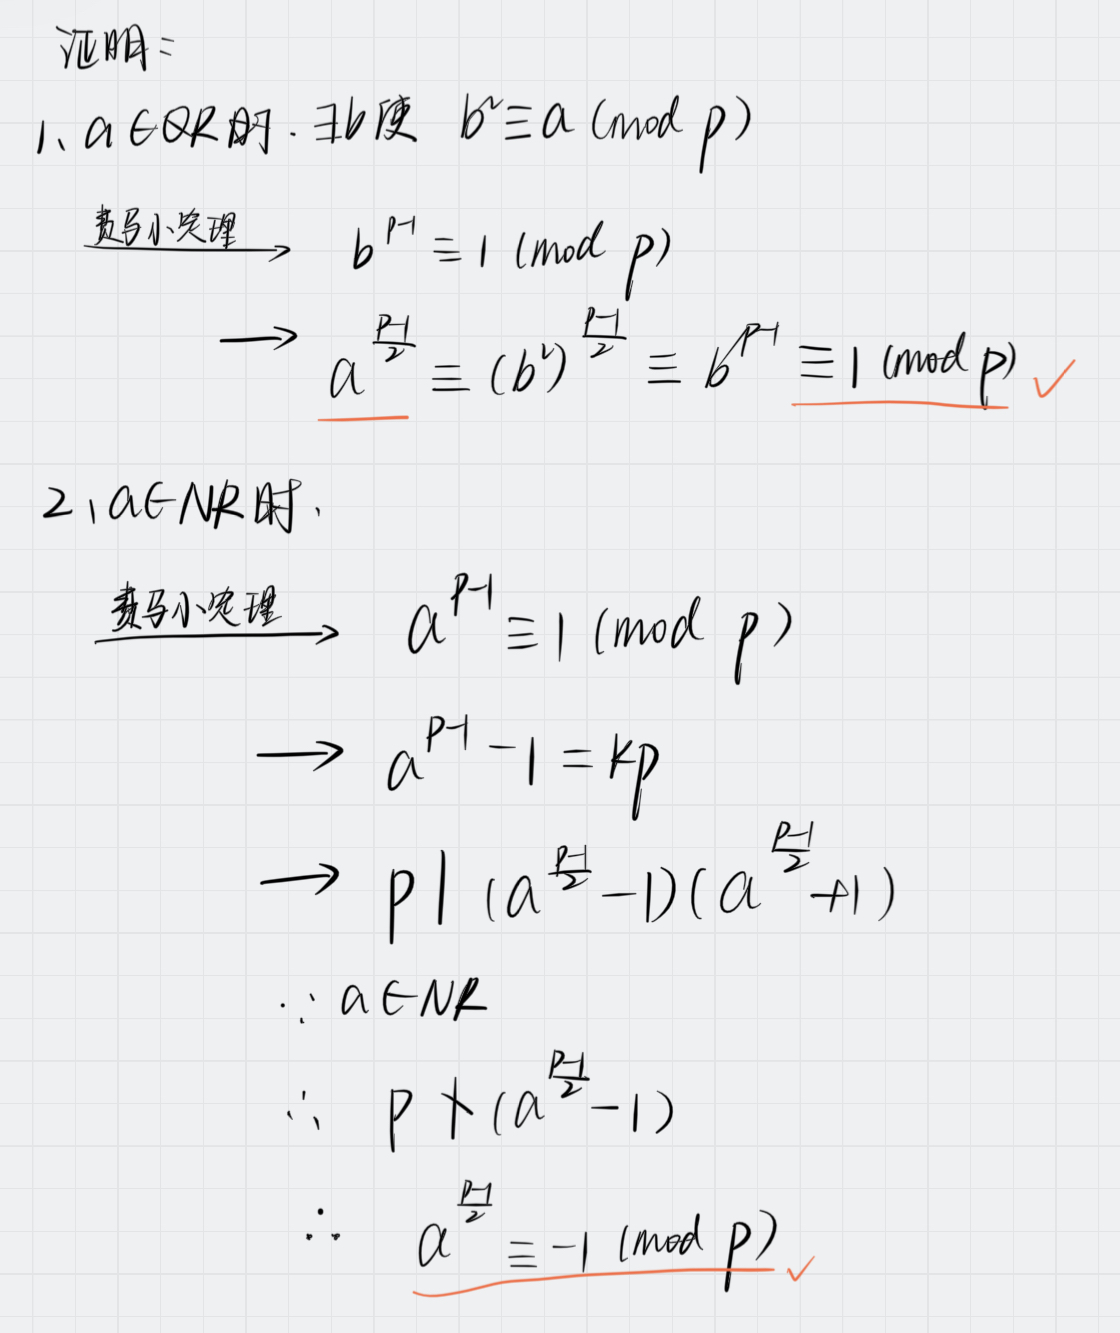 证明：
1、a∈QR时．∃b使 b²≡a (mod p)
费马小定理 → b^{p-1} ≡ 1 (mod p)
→ a^{\frac{p-1}{2}} ≡ (b²)^{\frac{p-1}{2}} ≡ b^{p-1} ≡ 1 (mod p) ✓
2、a∈NR时、
费马小定理 → a^{p-1} ≡ 1 (mod p)
→ a^{p-1} - 1 = kp
→ p | (a^{\frac{p-1}{2}} - 1)(a^{\frac{p-1}{2}} + 1)
∵ a∈NR
∴ p ∤ (a^{\frac{p-1}{2}} - 1)
∴ a^{\frac{p-1}{2}} ≡ -1 (mod p) ✓